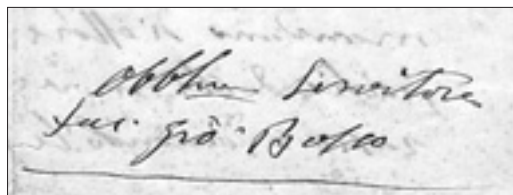 Obbl.mo Servitore
Sac. Gio. Bosco